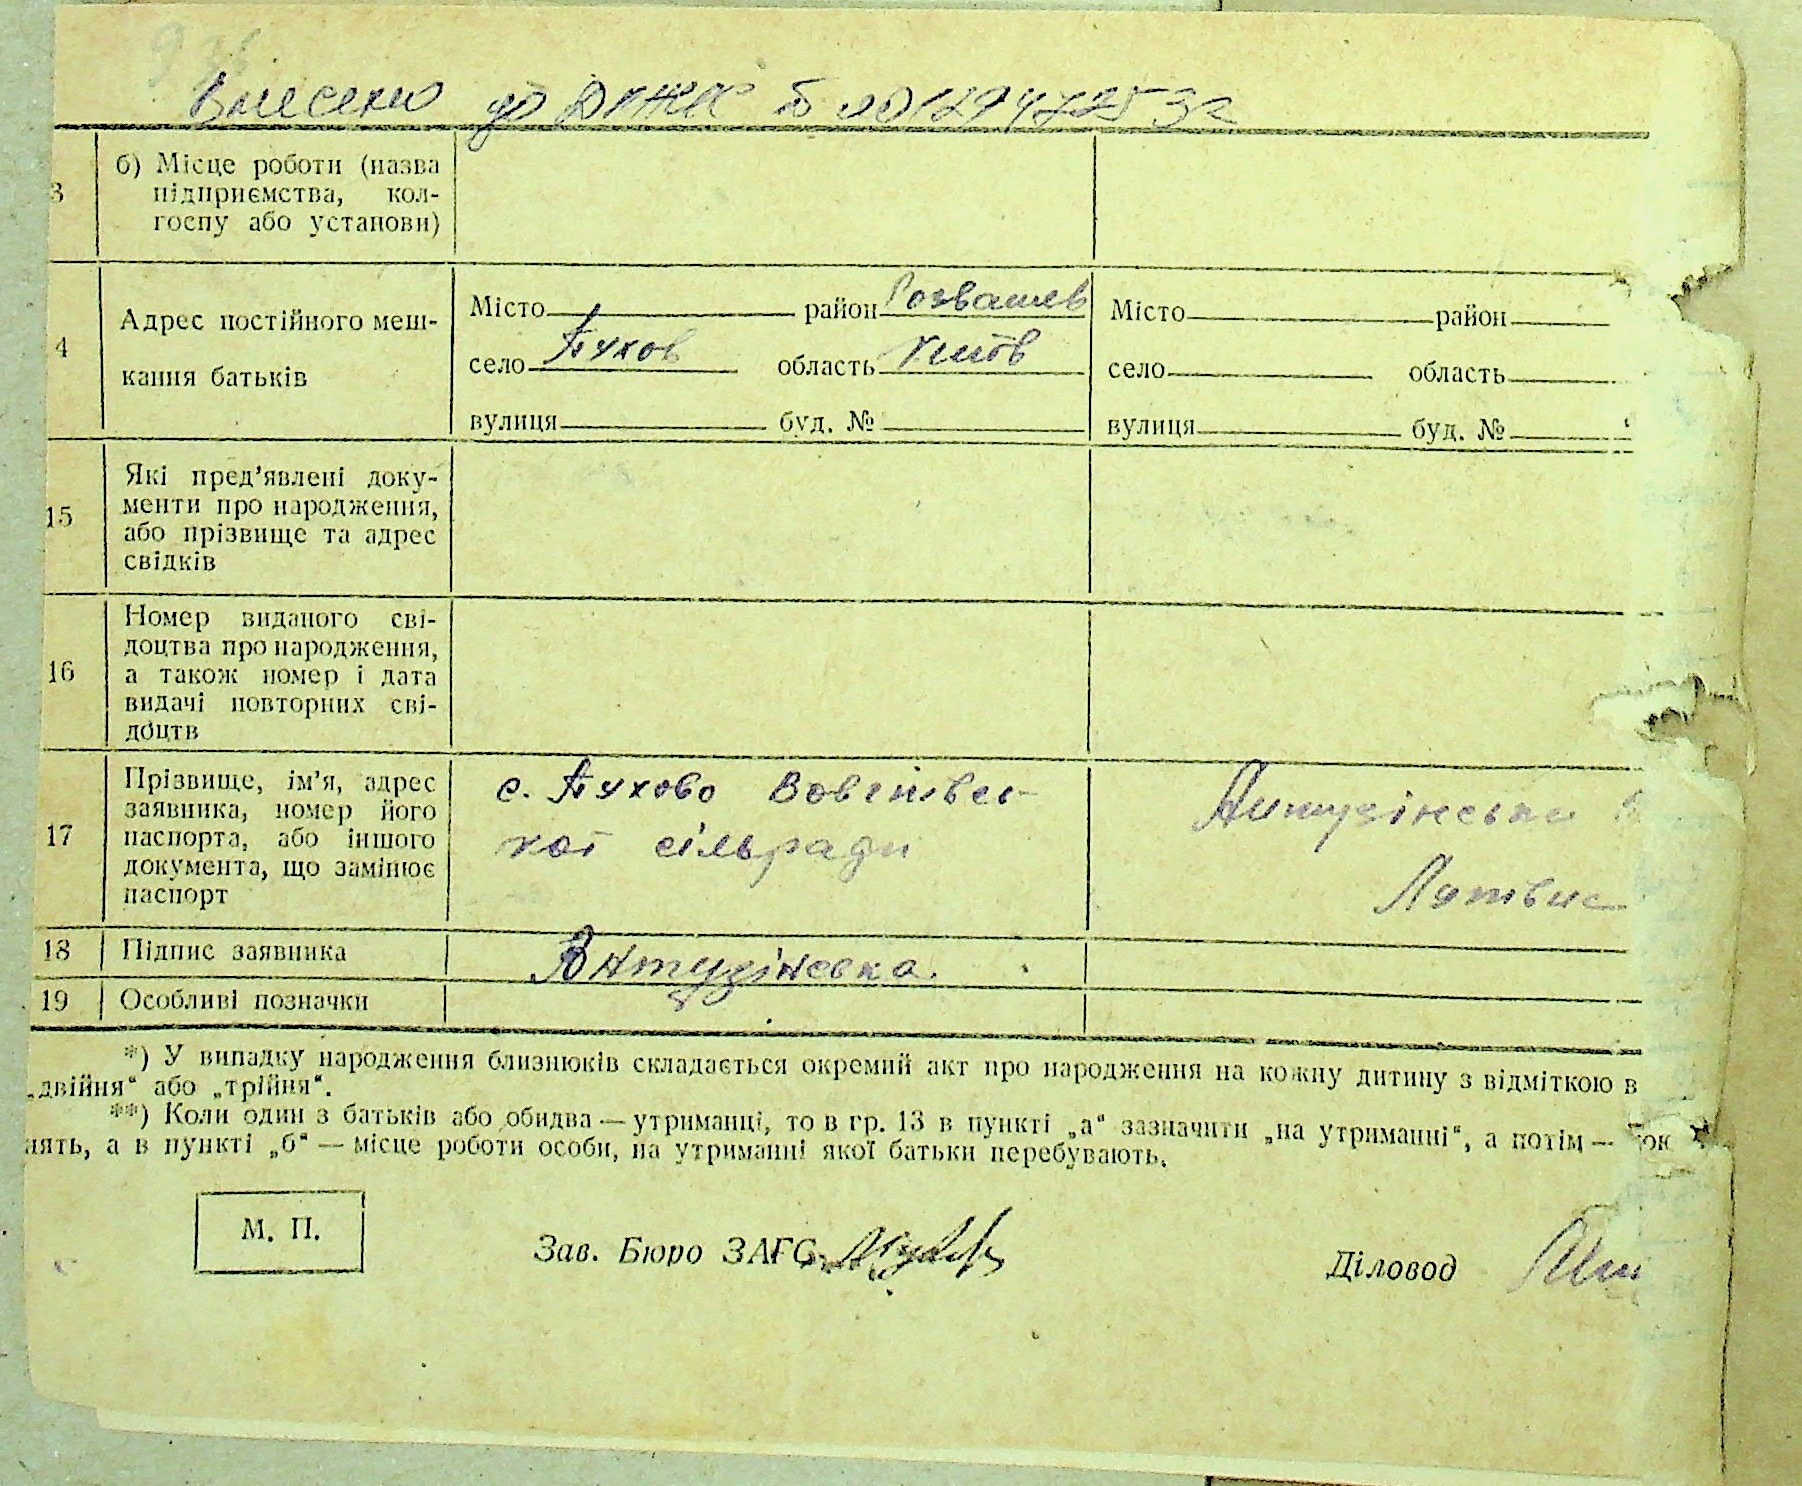 Внесено до
3 б) Місце роботи (назва
підприємства, кол-
госпу або установи)
4 Адрес постійного меш-
кання батьків
Місто район Розважев Місто район
село Пухов область Київ село область
вулиця буд. № вулиця буд. №
15 Які пред’явлені доку-
менти про народження,
або прізвище та адрес
свідків
16 Номер виданого сві-
доцтва про народження,
а також номер і дата
видачі повторних сві-
доцтв
17 Прізвище, ім’я, адрес
заявника, номер його
паспорта, або іншого
документа, що замінює
паспорт
с. Пухово
кої сільради
18 Підпис заявника Антузінська.
19 Особливі позначки
*) У випадку народження близнюків складається окремий акт про народження на кожну дитину з відміткою в
„двійня“ або „трійня“.
**) Коли один з батьків або обидва — утриманці, то в гр. 13 в пункті „а“ зазначити „на утриманні“, а потім —
нять, а в пункті „б“ — місце роботи особи, на утриманні якої батьки перебувають.
М. П.
Зав. Бюро ЗАГС Діловод